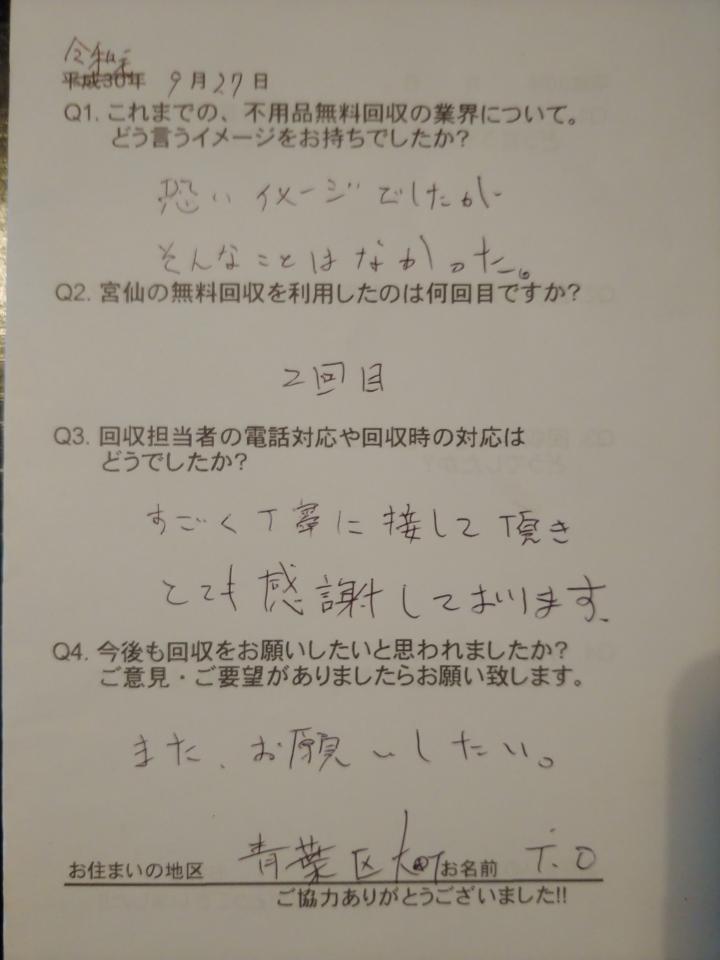 令和元
平成30年 9月27日
Q1. これまでの、不用品無料回収の業界について。
どう言うイメージをお持ちでしたか?
恐いイメージでしたが
そんなことはなかった。
Q2. 宮仙の無料回収を利用したのは何回目ですか?
2回目
Q3. 回収担当者の電話対応や回収時の対応は
どうでしたか?
すごく丁寧に接して頂き
とても感謝しております。
Q4. 今後も回収をお願いしたいと思われましたか?
ご意見・ご要望がありましたらお願い致します。
また、お願いしたい。
お住まいの地区 青葉区 お名前 T.O
ご協力ありがとうございました!!